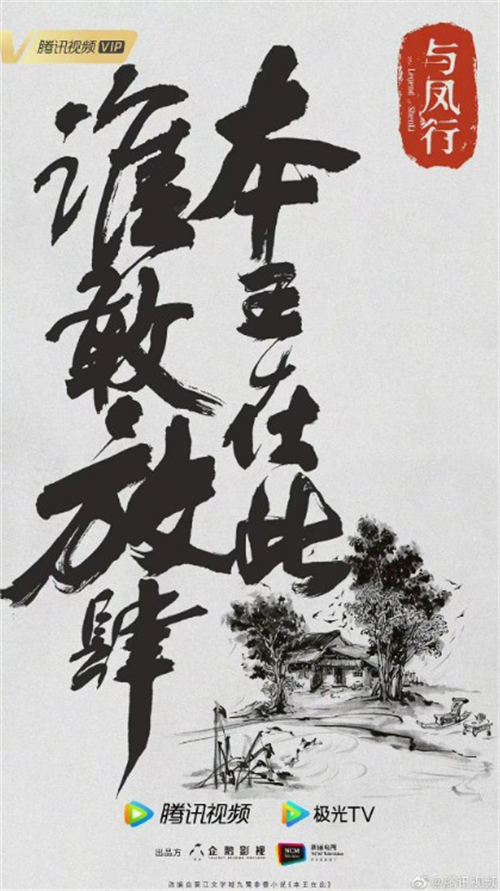 腾讯视频 VIP
与凤行
The Legend of ShenLi
本王在此
谁敢放肆
腾讯视频 极光TV
出品方 企鹅影视 新丽电视 NCM Television
改编自晋江文学城九鹭非香小说《本王在此》
@腾讯视频